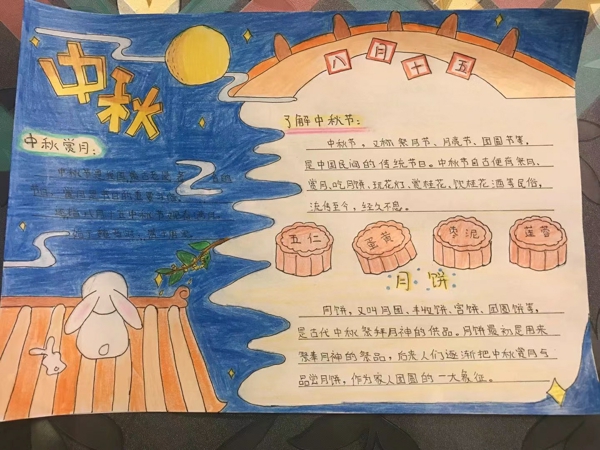 中秋
八月十五
中秋赏月：
了解中秋节：
中秋节，又称祭月节、月亮节、团圆节等，
是中国民间的传统节日。中秋节自古便有祭月、
赏月、吃月饼、玩花灯、赏桂花、饮桂花酒等民俗，
流传至今，经久不息。
五仁
蛋黄
枣泥
莲蓉
月饼
月饼，又叫月团、丰收饼、宫饼、团圆饼等，
是古代中秋祭拜月神的供品。月饼最初是用来
祭奉月神的祭品，后来人们逐渐把中秋赏月与
品尝月饼，作为家人团圆的一大象征。